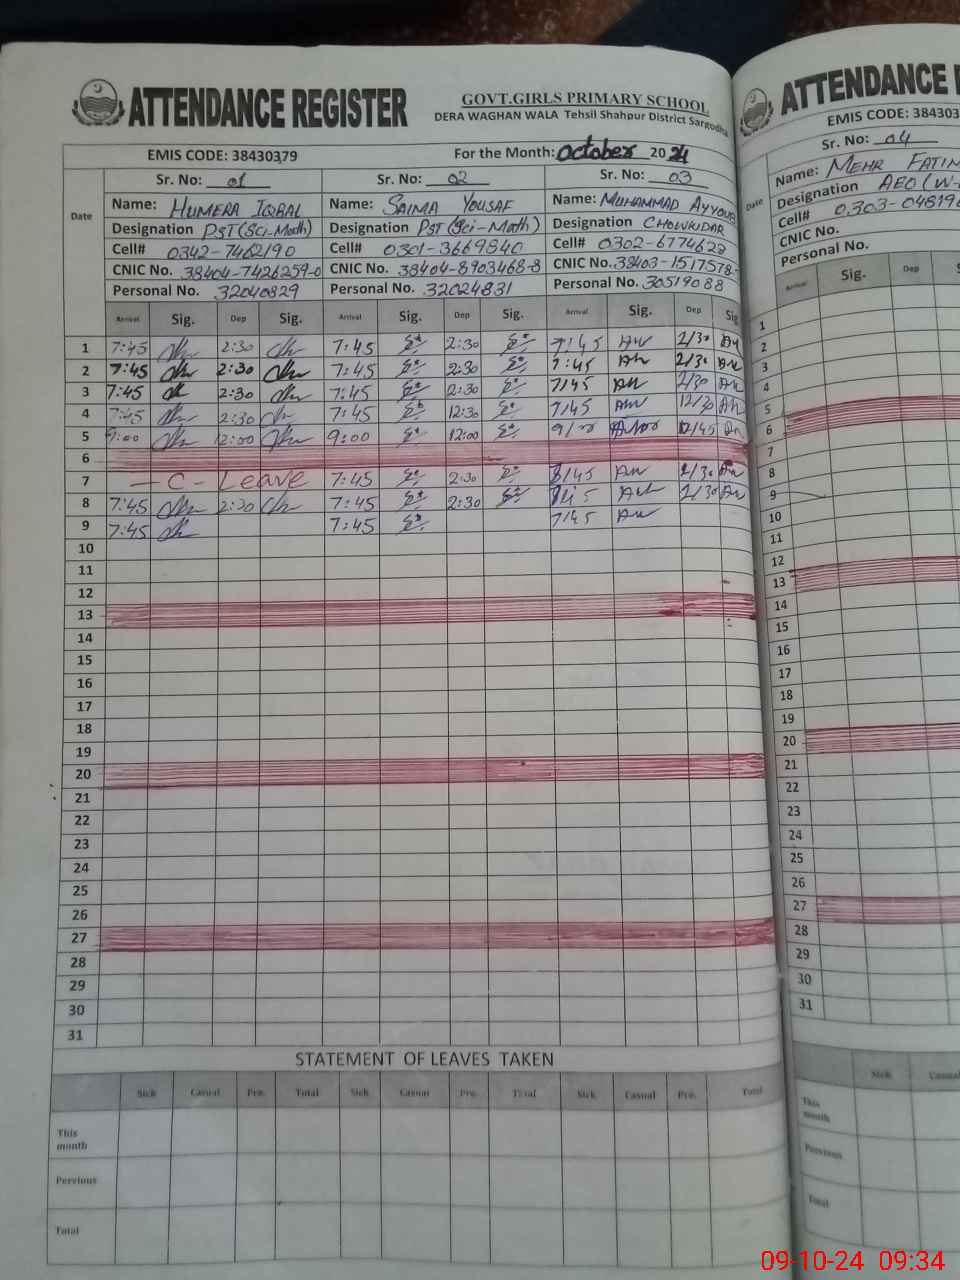 ATTENDANCE REGISTER
GOVT.GIRLS PRIMARY SCHOOL
DERA WAGHAN WALA Tehsil Shahpur District Sargodha
EMIS CODE: 38430379 For the Month: October 2024
Sr. No: 01 Sr. No: 02 Sr. No: 03
Date
Name: HUMERA IQBAL Name: SAIMA YOUSAF Name: MUHAMMAD AYYOUB
Designation PST (Sci-Math) Designation PST (Sci-Math) Designation CHOWKIDAR
Cell# 0342-7462190 Cell# 0301-3669840 Cell# 0302-6774628
CNIC No. 38404-7426259-0 CNIC No. 38404-8903468-8 CNIC No. 38403-1517578-
Personal No. 32040829 Personal No. 32024831 Personal No. 30519088
Arrival Sig. Dep Sig. Arrival Sig. Dep Sig. Arrival Sig. Dep Sig
1 7:45 2:30 7:45 2:30 7:45 2/30
2 7:45 2:30 7:45 2:30 7:45 2/30
3 7:45 2:30 7:45 2:30 7/45 2/30
4 7:45 2:30 7:45 12:30 7/45 12/30
5 9:00 12:00 9:00 12:00 12/45
6
7 - C - Leave 7:45 2:30 2/30
8 7:45 2:30 7:45 2:30 2/30
9 7:45 7:45 7/45
10
11
12
13
14
15
16
17
18
19
20
21
22
23
24
25
26
27
28
29
30
31
STATEMENT OF LEAVES TAKEN
Sick Casual Pre. Total Sick Casual Pre. Total Sick Casual Pre. Total
This month
Pervious
Total
ATTENDANCE
EMIS CODE: 384303
Sr. No: 04
Name: MEHR
Date
Designation AEO
Cell# 0303-
CNIC No.
Personal No.
Arrival Sig. Dep
1
2
3
4
5
6
7
8
9
10
11
12
13
14
15
16
17
18
19
20
21
22
23
24
25
26
27
28
29
30
31
Sick Casual
This month
Pervious
Total
09-10-24 09:34